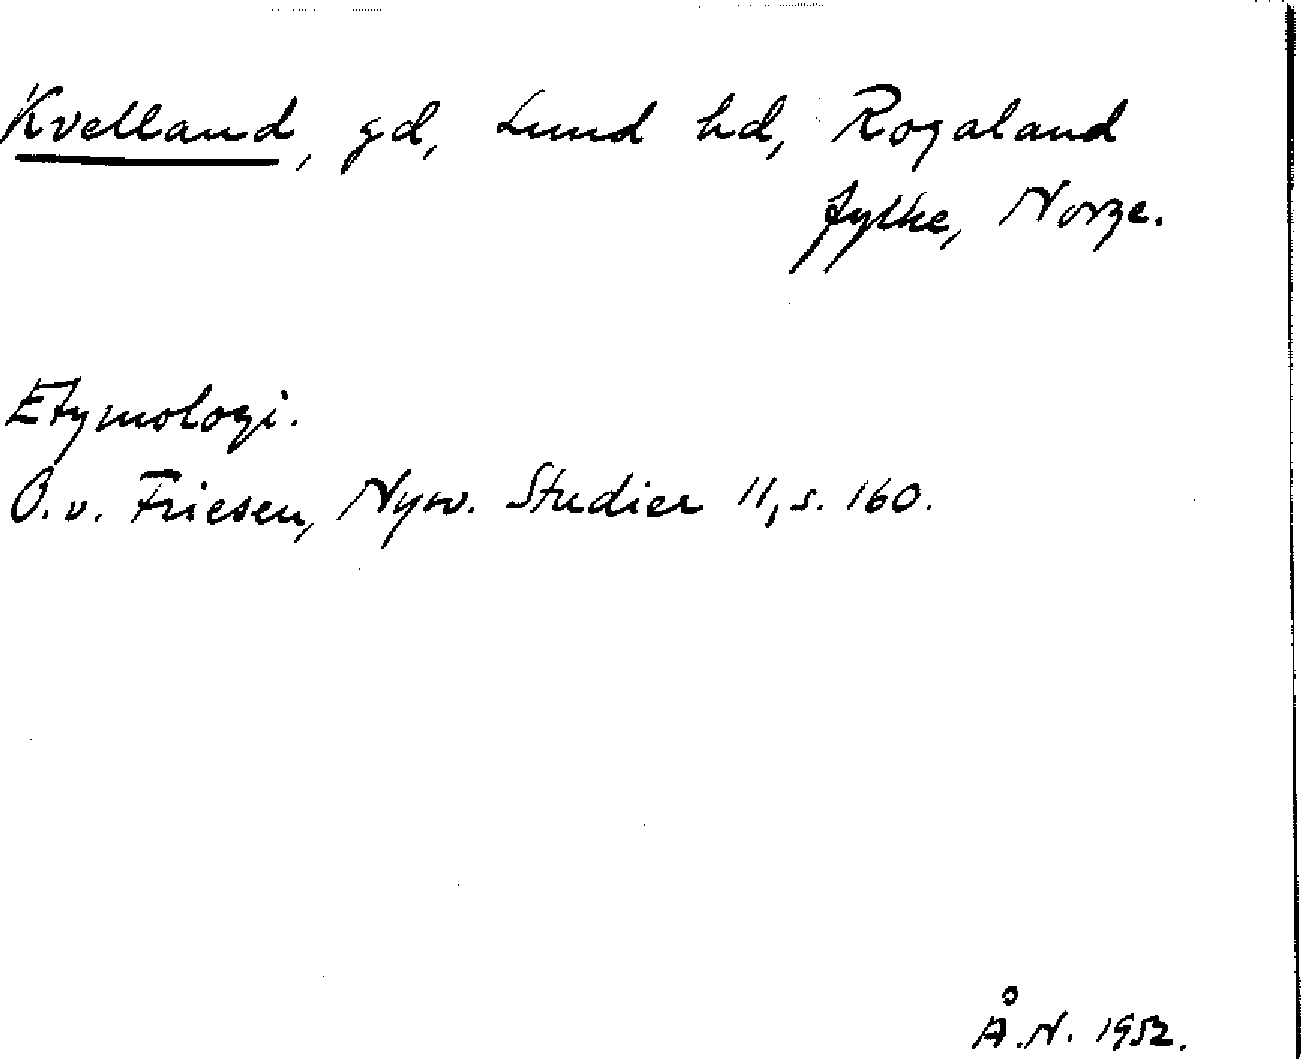 Kvelland, gd, Lund hd, Rogaland
fylke, Norge.
Etymologi.
O. v. Friesen, Nysv. Studier 11, s. 160.
Å. N. 1952.